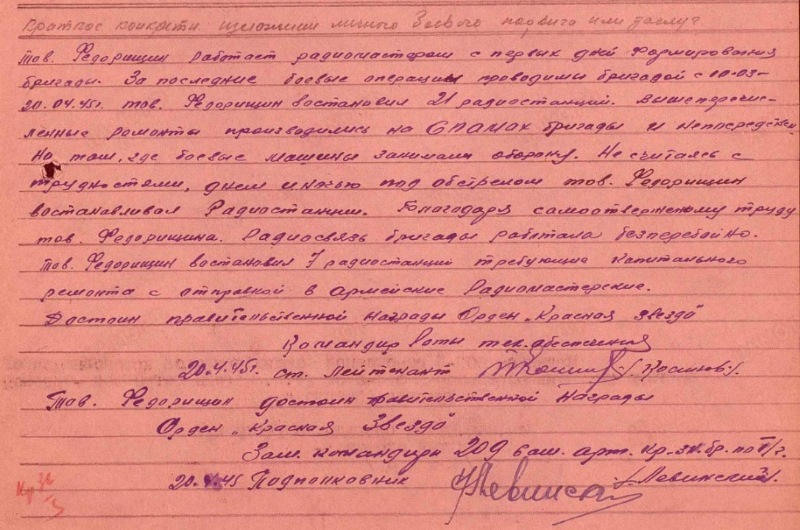 Краткое конкретн изложение личного боевого подвига или заслуг
Тов. Федорищин работает радиомастером с первых дней формирования
бригады. За последние боевые операции проводимы бригадой с 10-03-
20.04.45г. тов. Федорищин востановил 21 радиостанций. Вышеперечис-
ленные ремонты производились на СПАМАХ бригады и непосредствен-
но там, где боевые машины занимали оборону. Не считаясь с
трудностями, днем и ночью под обстрелом тов. Федорищин
востанавливал Радиостанции. Благодаря самоотверженому труду
тов. Федорищина. Радиосвязь бригады работала безперебойно.
Тов. Федорищин востановил 7 радиостанций требующие капитального
ремонта с отправкой в Армейские Радиомастерские.
Достоин правительственной Награды Орден „Красная звезда"
Командир Роты тех.обеспечения
20.4.45г. ст. лейтенант /Косилов/.
Тов. Федорищин достоин правительственной Награды
Орден „Красная Звезда"
Зам. командира 209 сам. арт. Кр.зн.бр. по т/ч.
20.4.45 Подполковник /Левинский/.